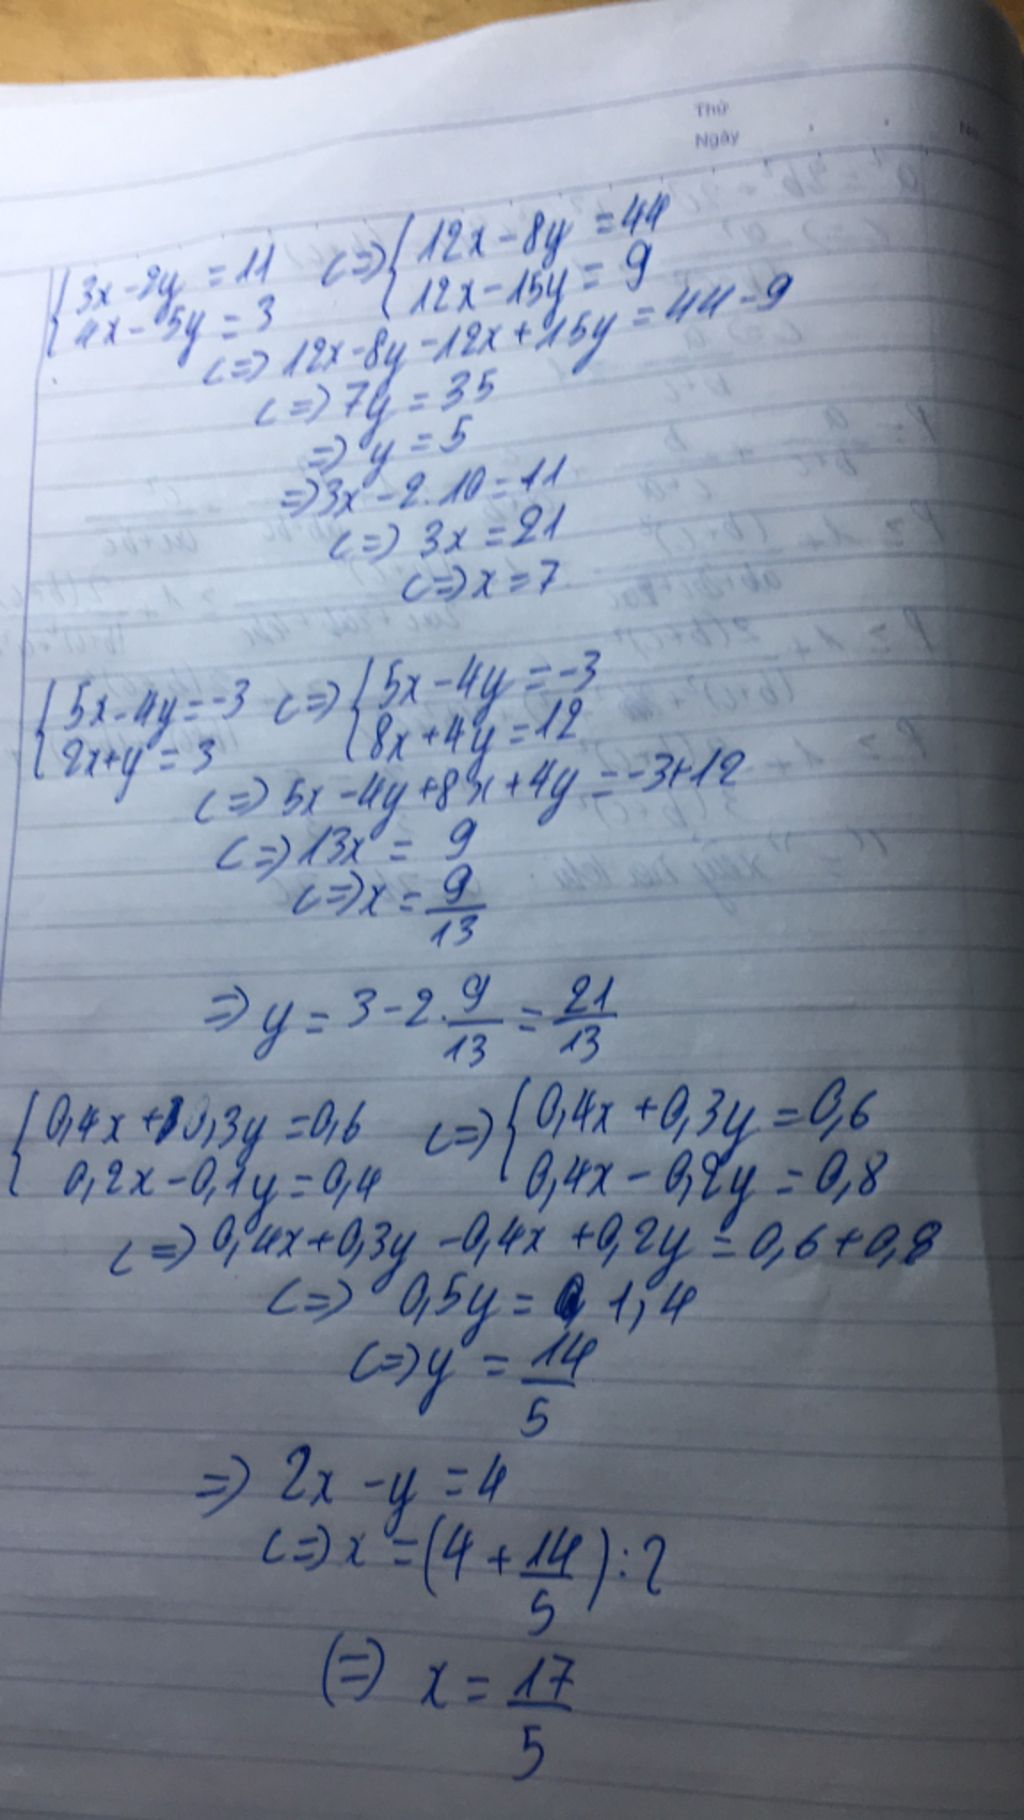 Thứ
Ngày
No
{ 3x - 2y = 11 <=> { 12x - 8y = 44
4x - 5y = 3 12x - 15y = 9
<=> 12x - 8y - 12x + 15y = 44 - 9
<=> 7y = 35
=> y = 5
=> 3x - 2.10 = 11
<=> 3x = 21
<=> x = 7
{ 5x - 4y = -3 <=> { 5x - 4y = -3
2x + y = 3 8x + 4y = 12
<=> 5x - 4y + 8x + 4y = -3 + 12
<=> 13x = 9
<=> x = 9/13
=> y = 3 - 2.9/13 = 21/13
{ 0,4x + 0,3y = 0,6 <=> { 0,4x + 0,3y = 0,6
0,2x - 0,1y = 0,4 0,4x - 0,2y = 0,8
<=> 0,4x + 0,3y - 0,4x + 0,2y = 0,6 + 0,8
<=> 0,5y = 1,4
<=> y = 14/5
=> 2x - y = 4
<=> x = (4 + 14/5) : 2
(=> x = 17/5